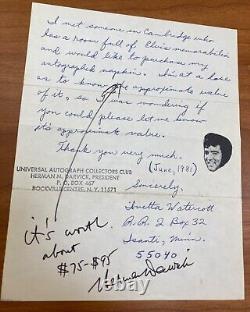 I met someone in Cambridge who
has a room full of Elvis memorabilia
and would like to purchase my
autographed napkin. I'm at a loss
as to know the approximate value
of it, so I was wondering if
you could please let me know
its approximate value.
Thank you very much.
(June, 1981)
Sincerely,
UNIVERSAL AUTOGRAPH COLLECTORS CLUB
HERMAN M. DARVICK, PRESIDENT
P. O. BOX 467
ROCKVILLE CENTRE, N.Y. 11571
R.R. 2 Box 32
Isanti, Minn.
55040
it's worth
about
$75-$95
Herman Darvick